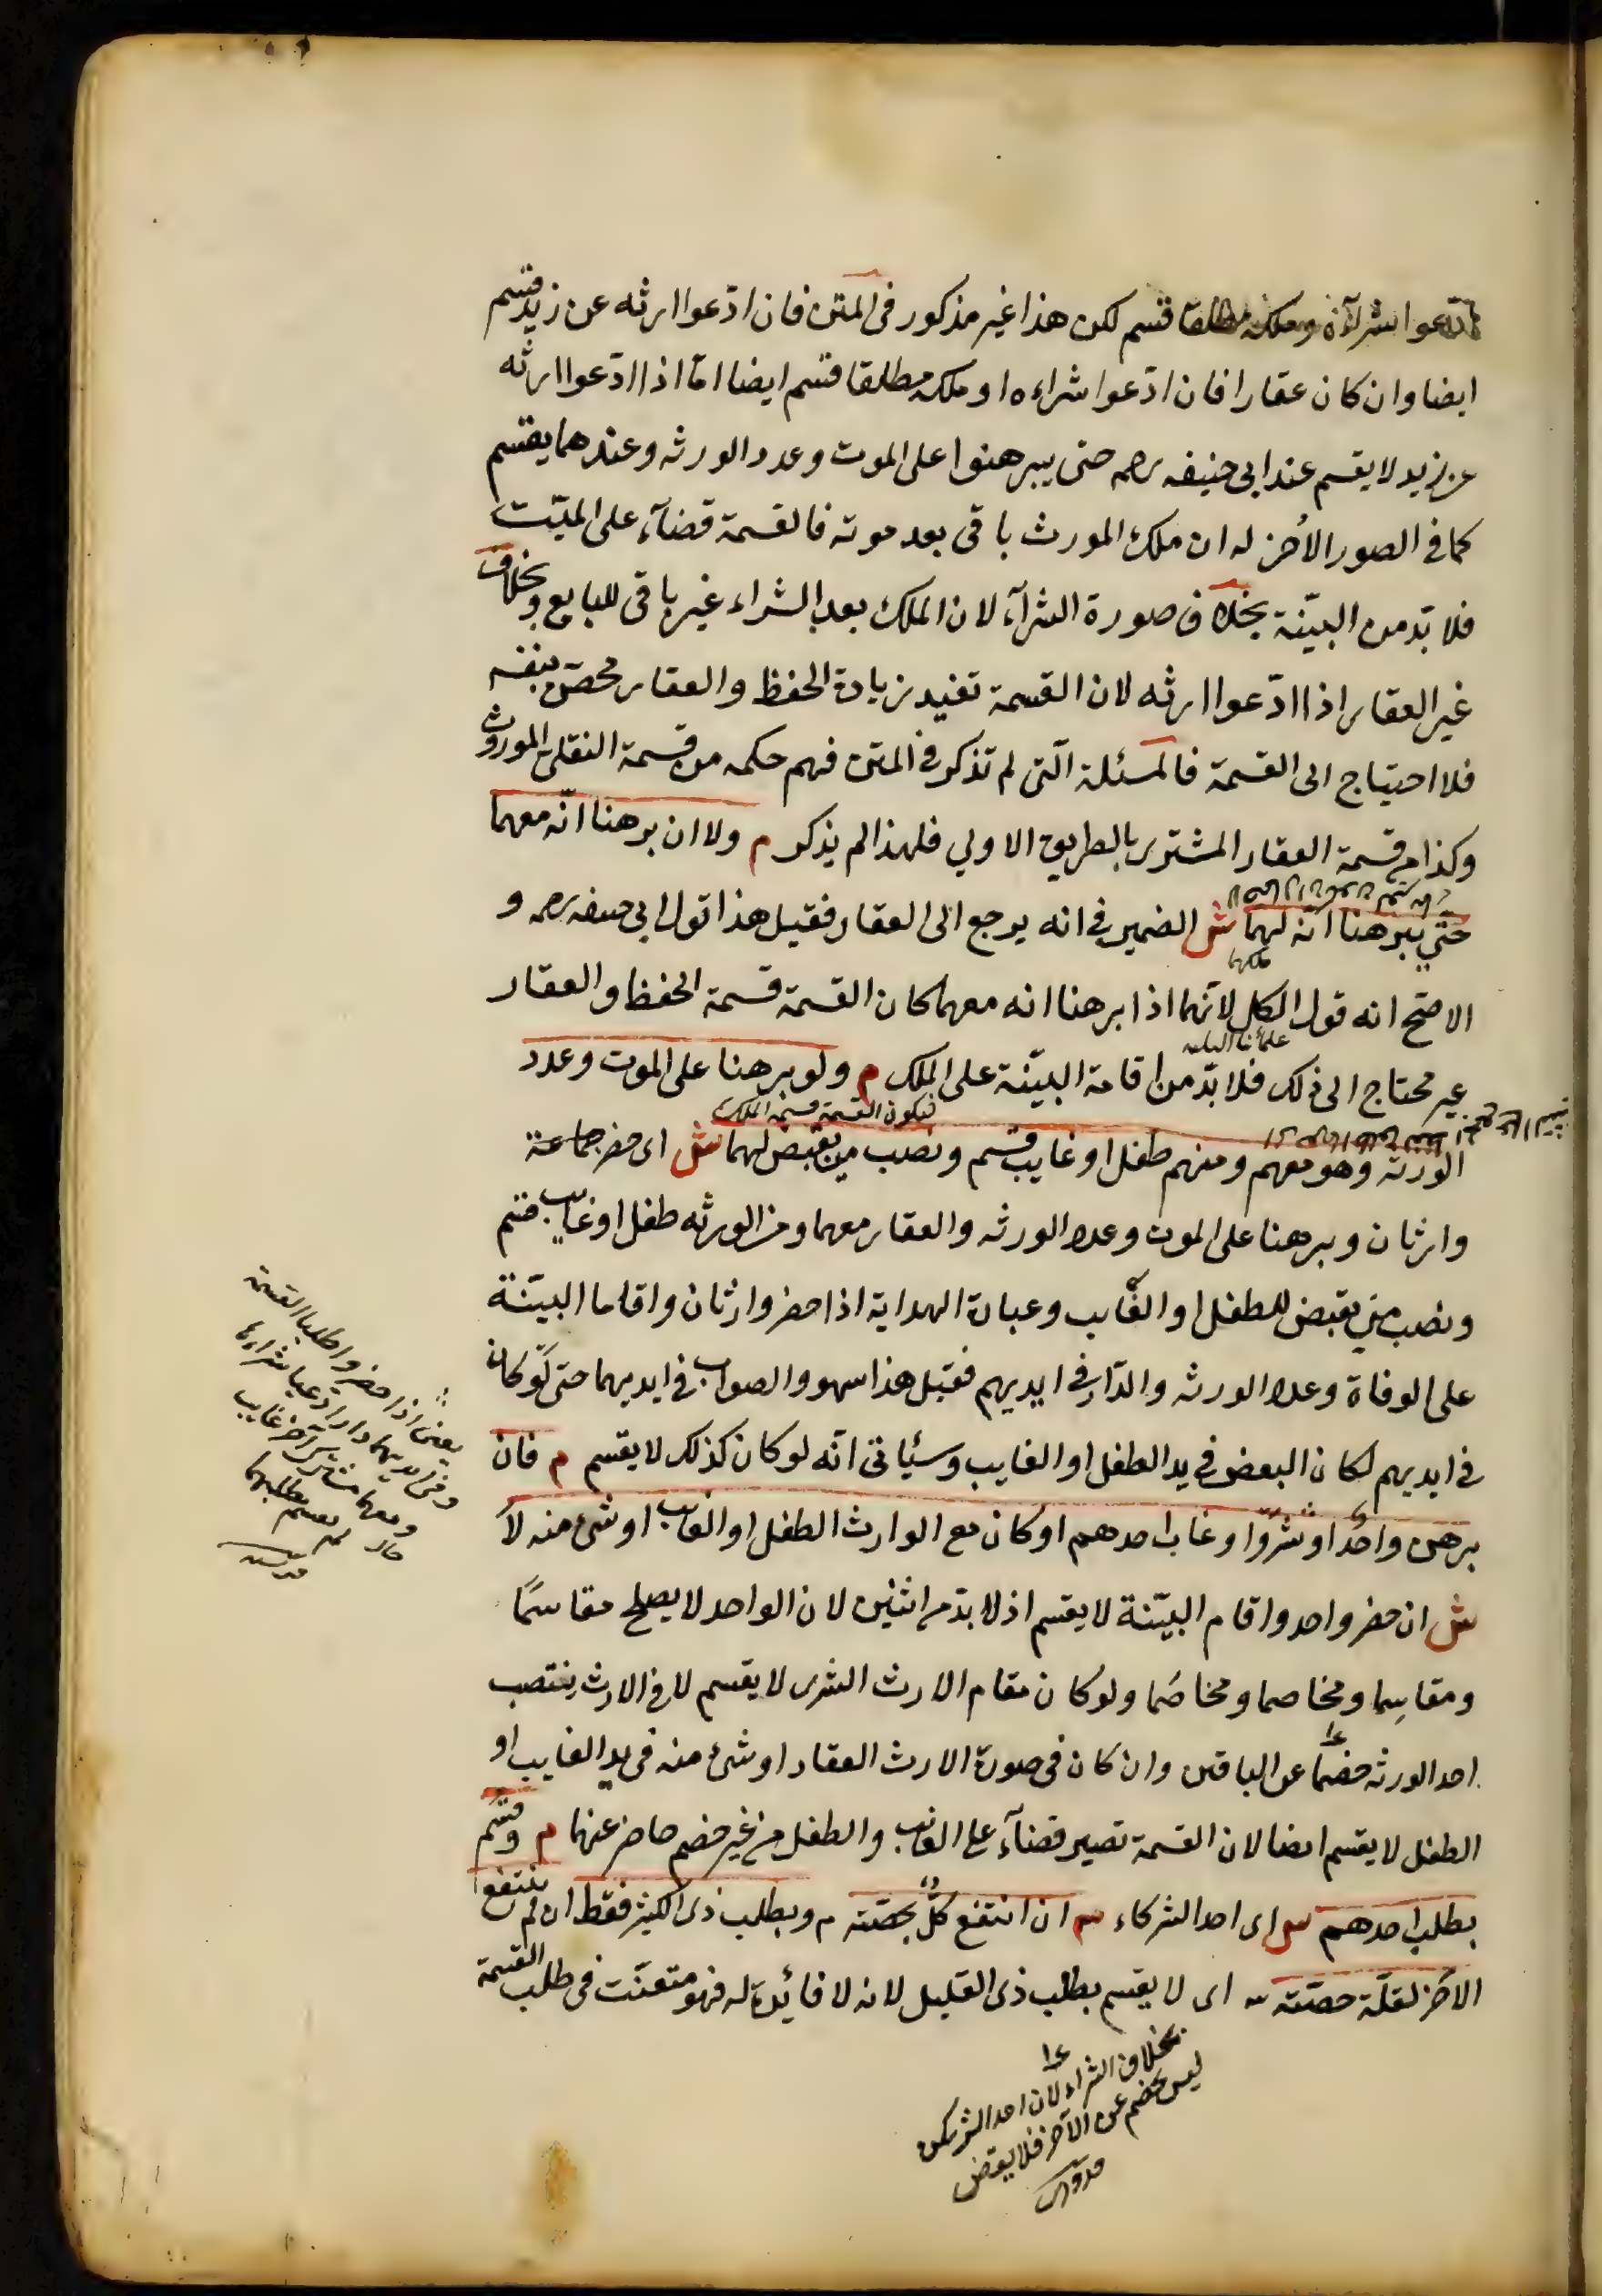 ادّعوا شراءه وملكه مطلقا قسم لكن هذا غير مذكور فى المتن فان ادّعوا ارثه عن زيد قسم
ايضا وان كان عقارا فان ادّعوا شراءه او ملكه مطلقا قسم ايضا امّا اذا ادّعوا ارثه
عن زيد لا يقسم عند ابى حنيفه رحمه حتى يبرهنوا على الموت وعدد الورثه وعندهما يقسم
كما فى الصور الأخر له ان ملك المورث باقى بعد موته فالقسمة قضآء على الميّت
فلا بدّ من البيّنة بخلاف صورة الشرآء لان الملك بعد الشراء غير باقى للبايع وبخلاف
غير العقار اذا ادّعوا ارثه لان القسمة تفيد زيادة الحفظ والعقار محصّن بنفسه
فلا احتياج الى القسمة فالمسئلة الّتى لم تذكر فى المتن فهم حكمه من قسمة النقلى الموروث
وكذا من قسمة العقار المشترى بالطريق الاولي فلهذا لم يذكر م ولا ان برهنا انّه معهما
حتّي يبرهنا انّه لهما ش الضمير فى انه يرجع الى العقار فقيل هذا قول ابى حنيفه رحمه و
ملكهما
الاصحّ انه قول الكل لانّهما اذا برهنا انه معهما كان القسمة قسمة الحفظ والعقار
علمائنا الثلثه
غير محتاج الى ذلك فلا بدّ من اقامة البيّنة على الملك م ولو برهنا على الموت وعدد
فيكون القسمة قسمة الملك
الورثه وهو معهم ومنهم طفل او غايب قسم ونصب من يقبض لهما ش اى حضر جماعة
وارثان وبرهنا على الموت وعدد الورثه والعقار معهما ومن الورثه طفل او غايب قسم
ونصب من يقبض للطفل او الغايب وعبارة الهداية اذا حضر وارثان واقاما البيّنة
على الوفاة وعدد الورثه والدّار فى ايديهم فقيل هذا سهو والصواب فى ايديهما حتى لو كان
فى ايديهم لكان البعض فى يد الطفل او الغايب وسيأتى انّه لو كان كذلك لا يقسم م فان
برهن واحد او شروا وغاب احدهم او كان مع الوارث الطفل او الغايب او شىء منه لا
ش ان حضر واحد واقام البيّنة لا يقسم اذ لا بدّ من اثنين لان الواحد لا يصلح مقاسمًا
ومقاسِما ومخاصما ومخاصَما ولو كان مقام الارث الشرى لا يقسم لان فى الارث ينتصب
احد الورثه خصما عن الباقين وان كان فى صورة الارث العقار او شىء منه فى يد الغايب او
الطفل لا يقسم ايضا لان القسمة تصير قضآء على الغايب والطفل من غير خصم حاضر عنهما م وقسّم
بطلب احدهم ش اى احد الشركاء م ان انتفع كلّ بحصّته م وبطلب ذى الكثير فقط ان لم ينتفع
الآخر لقلّة حصّته ش اى لا يقسم بطلب ذى القليل لانه لا فائدة له فهو متعنّت فى طلب القسمة
يعنى اذا حضر واطلبا القسمة
وفى ايديهما دار ادّعيا شراءها
ومعهما مشترى آخر غايب
بخلاف الشراء لان احد الشريكين
ليس بخصم عن الآخر فلا يقضى